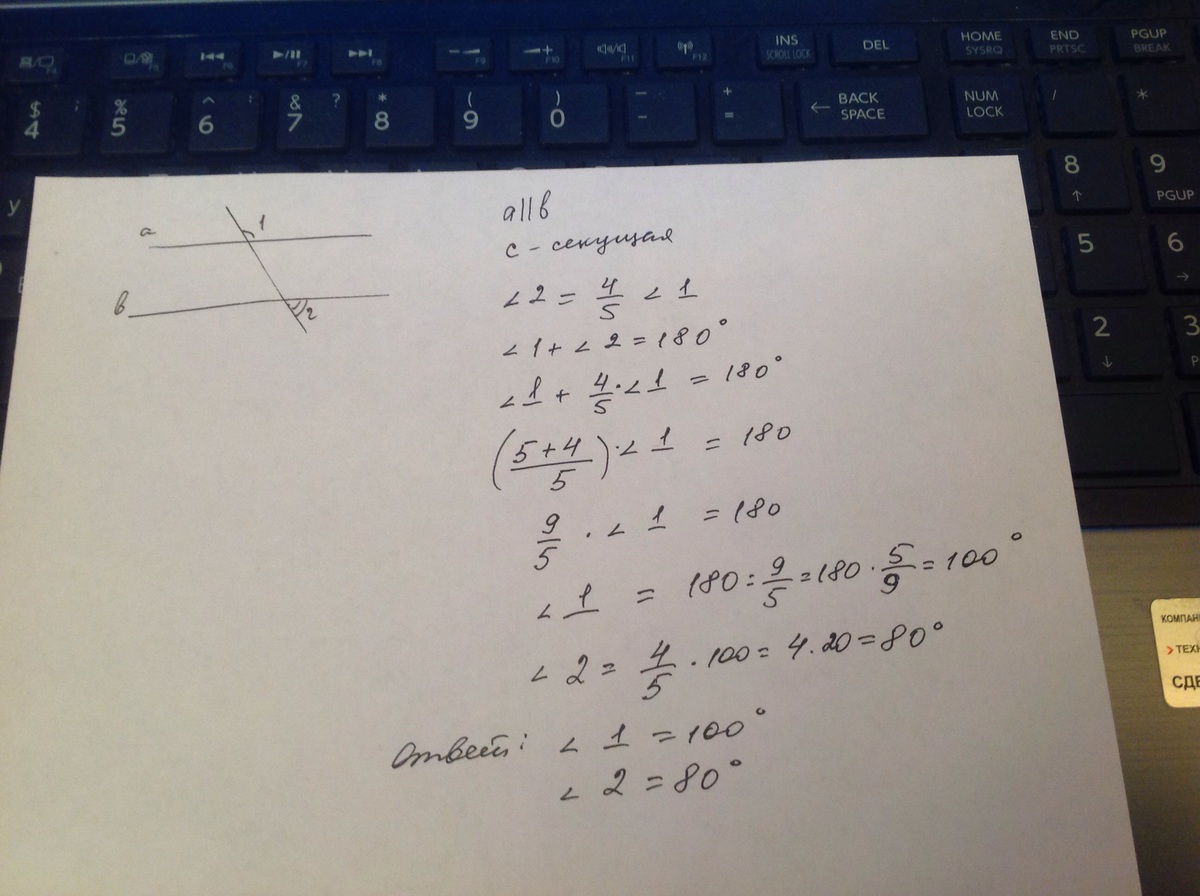 F4
F5
F6
F7
F8
F9
F10
F11
F12
INS
SCROLL LOCK
DEL
HOME
SYSRQ
END
PRTSC
PGUP
BREAK
$ ;
4
%
5
^ :
6
& ?
7
*
8
(
9
)
0
–
-
+
=
← BACK
SPACE
NUM
LOCK
/
*
У
8
↑
9
PGUP
5
6
→
2
↓
3
a
1
в
2
a||в
c - секущая
∠2 = 4/5 ∠1
∠1 + ∠2 = 180°
∠1 + 4/5 · ∠1 = 180°
(5+4/5) · ∠1 = 180
9/5 · ∠1 = 180
∠1 = 180 : 9/5 = 180 · 5/9 = 100°
∠2 = 4/5 · 100 = 4 · 20 = 80°
Ответ: ∠1 = 100°
∠2 = 80°